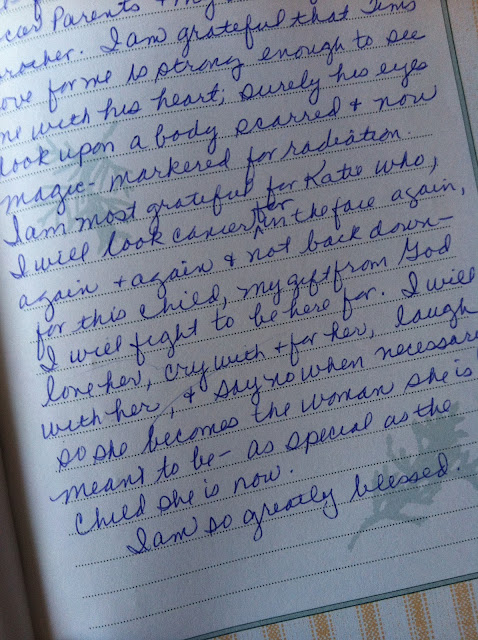 Parents + my
brother. I am grateful that Tim's
love for me is strong enough to see
me with his heart; surely his eyes
look upon a body scarred + now
magic-markered for radiation.
I am most grateful for Katie who,
I will look cancer for her in the face again,
again + again + not back down—
for this child, my gift from God
I will fight to be here for. I will
love her, cry with + for her, laugh
with her, + say no when necessary
so she becomes the woman she is
meant to be - as special as the
child she is now.
I am so greatly blessed.